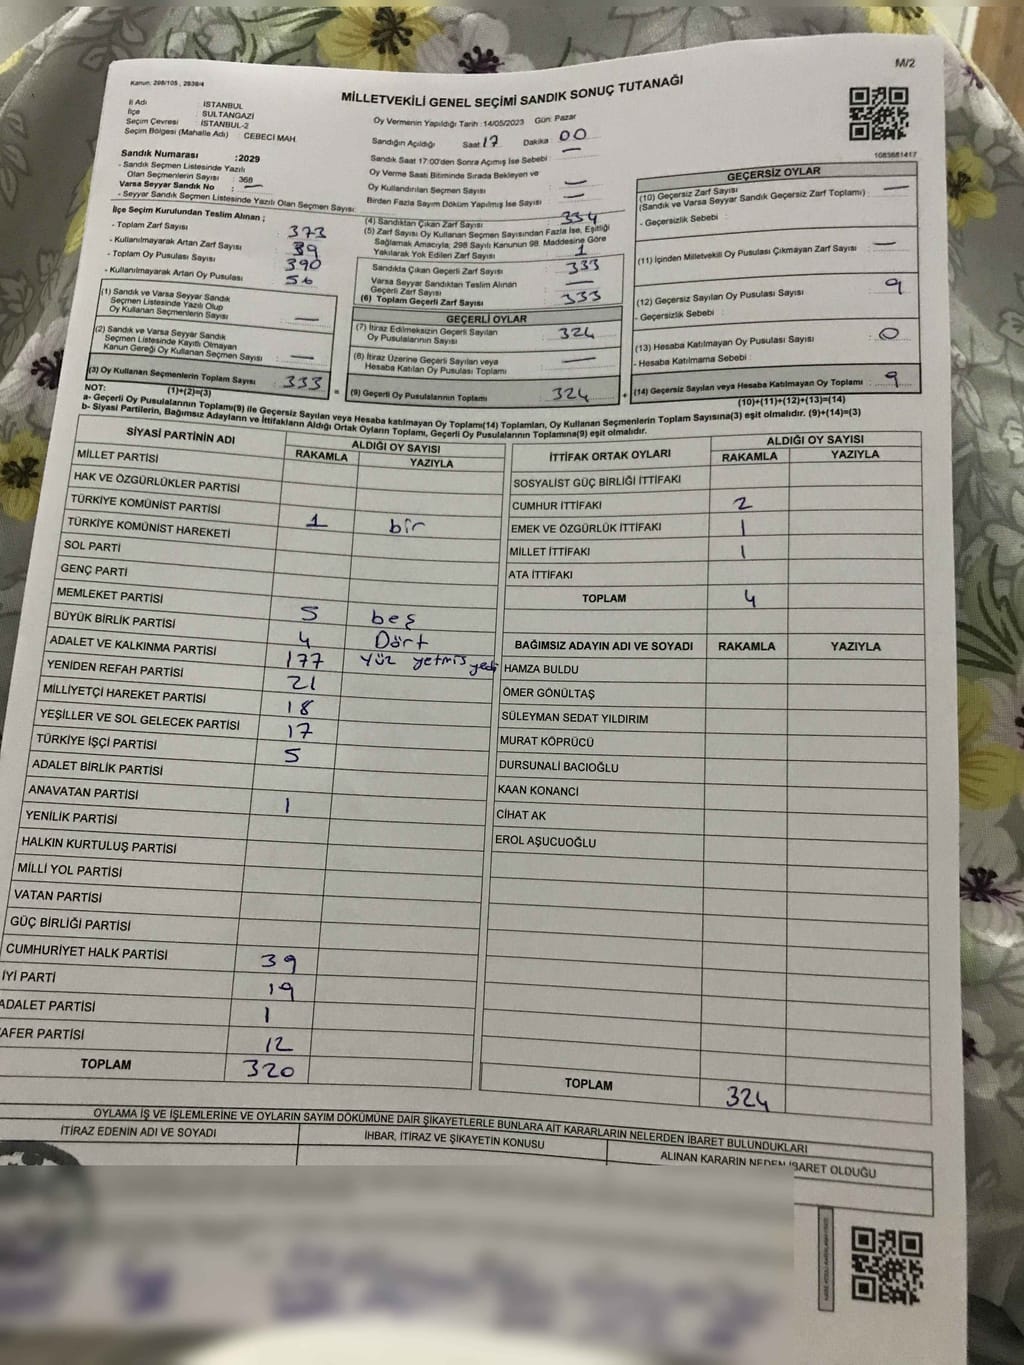 M/2
Kanun: 298/105 , 2839/4
MİLLETVEKİLİ GENEL SEÇİMİ SANDIK SONUÇ TUTANAĞI
İl Adı İSTANBUL
İlçe SULTANGAZİ
Seçim Çevresi İSTANBUL-2
Seçim Bölgesi (Mahalle Adı) CEBECİ MAH.
Sandık Numarası :2029
- Sandık Seçmen Listesinde Yazılı
Olan Seçmenlerin Sayısı : 368
Varsa Seyyar Sandık No : —
- Seyyar Sandık Seçmen Listesinde Yazılı Olan Seçmen Sayısı:
İlçe Seçim Kurulundan Teslim Alınan ;
- Toplam Zarf Sayısı 373
- Kullanılmayarak Artan Zarf Sayısı 39
- Toplam Oy Pusulası Sayısı 390
- Kullanılmayarak Artan Oy Pusulası 56
(1) Sandık ve Varsa Seyyar Sandık
Seçmen Listesinde Yazılı Olup
Oy Kullanan Seçmenlerin Sayısı —
(2) Sandık ve Varsa Seyyar Sandık
Seçmen Listesinde Kayıtlı Olmayan
Kanun Gereği Oy Kullanan Seçmen Sayısı —
(3) Oy Kullanan Seçmenlerin Toplam Sayısı : 333
(1)+(2)=(3)
Oy Vermenin Yapıldığı Tarih :14/05/2023 Gün: Pazar
Sandığın Açıldığı Saat 17 Dakika 00
Sandık Saat 17:00'den Sonra Açımış İse Sebebi : —
Oy Verme Saati Bitiminde Sırada Bekleyen ve
Oy Kullandırılan Seçmen Sayısı —
Birden Fazla Sayım Döküm Yapılmış İse Sayısı —
(4) Sandıktan Çıkan Zarf Sayısı 334
(5) Zarf Sayısı Oy Kullanan Seçmen Sayısından Fazla İse, Eşitliği
Sağlamak Amacıyla, 298 Sayılı Kanunun 98. Maddesine Göre
Yakılarak Yok Edilen Zarf Sayısı 1
Sandıkta Çıkan Geçerli Zarf Sayısı 333
Varsa Seyyar Sandıktan Teslim Alınan
Geçerli Zarf Sayısı —
(6) Toplam Geçerli Zarf Sayısı 333
GEÇERLİ OYLAR
(7) İtiraz Edilmeksizin Geçerli Sayılan
Oy Pusulasının Sayısı 324
(8) İtiraz Üzerine Geçerli Sayılan veya
Hesaba Katılan Oy Pusulası Toplamı —
= (9) Geçerli Oy Pusulalarının Toplamı 324 +
1083681417
GEÇERSİZ OYLAR
(10) Geçersiz Zarf Sayısı
(Sandık ve Varsa Seyyar Sandık Geçersiz Zarf Toplamı) : —
- Geçersizlik Sebebi :
(11) İçinden Milletvekili Oy Pusulası Çıkmayan Zarf Sayısı —
(12) Geçersiz Sayılan Oy Pusulası Sayısı : 9
- Geçersizlik Sebebi :
(13) Hesaba Katılmayan Oy Pusulası Sayısı : 0
- Hesaba Katılmama Sebebi :
(14) Geçersiz Sayılan veya Hesaba Katılmayan Oy Toplamı : 9
(10)+(11)+(12)+(13)=(14)
NOT:
a- Geçerli Oy Pusulalarının Toplamı(9) ile Geçersiz Sayılan veya Hesaba katılmayan Oy Toplamı(14) Toplamları, Oy Kullanan Seçmenlerin Toplam Sayısına(3) eşit olmalıdır. (9)+(14)=(3)
b- Siyasi Partilerin, Bağımsız Adayların ve İttifakların Aldığı Ortak Oyların Toplamı, Geçerli Oy Pusulalarının Toplamına(9) eşit olmalıdır.
SİYASİ PARTİNİN ADI ALDIĞI OY SAYISI
RAKAMLA YAZIYLA
MİLLET PARTİSİ
HAK VE ÖZGÜRLÜKLER PARTİSİ
TÜRKİYE KOMÜNİST PARTİSİ
TÜRKİYE KOMÜNİST HAREKETİ 1 bir
SOL PARTİ
GENÇ PARTİ
MEMLEKET PARTİSİ
BÜYÜK BİRLİK PARTİSİ 5 beş
ADALET VE KALKINMA PARTİSİ 4 Dört
YENİDEN REFAH PARTİSİ 177 yüz yetmiş yedi
MİLLİYETÇİ HAREKET PARTİSİ 21
YEŞİLLER VE SOL GELECEK PARTİSİ 18
TÜRKİYE İŞÇİ PARTİSİ 17
ADALET BİRLİK PARTİSİ 5
ANAVATAN PARTİSİ
YENİLİK PARTİSİ 1
HALKIN KURTULUŞ PARTİSİ
MİLLİ YOL PARTİSİ
VATAN PARTİSİ
GÜÇ BİRLİĞİ PARTİSİ
CUMHURİYET HALK PARTİSİ 39
İYİ PARTİ 19
ADALET PARTİSİ 1
AFER PARTİSİ 12
TOPLAM 320
İTTİFAK ORTAK OYLARI ALDIĞI OY SAYISI
RAKAMLA YAZIYLA
SOSYALİST GÜÇ BİRLİĞİ İTTİFAKI
CUMHUR İTTİFAKI 2
EMEK VE ÖZGÜRLÜK İTTİFAKI 1
MİLLET İTTİFAKI 1
ATA İTTİFAKI
TOPLAM 4
BAĞIMSIZ ADAYIN ADI VE SOYADI RAKAMLA YAZIYLA
HAMZA BULDU
ÖMER GÖNÜLTAŞ
SÜLEYMAN SEDAT YILDIRIM
MURAT KÖPRÜCÜ
DURSUNALİ BACIOĞLU
KAAN KONANCI
CİHAT AK
EROL AŞUCUOĞLU
TOPLAM 324
OYLAMA İŞ VE İŞLEMLERİNE VE OYLARIN SAYIM DÖKÜMÜNE DAİR ŞİKAYETLERLE BUNLARA AİT KARARLARIN NELERDEN İBARET BULUNDUKLARI
İTİRAZ EDENİN ADI VE SOYADI İHBAR, İTİRAZ VE ŞİKAYETİN KONUSU ALINAN KARARIN NEDEN İBARET OLDUĞU